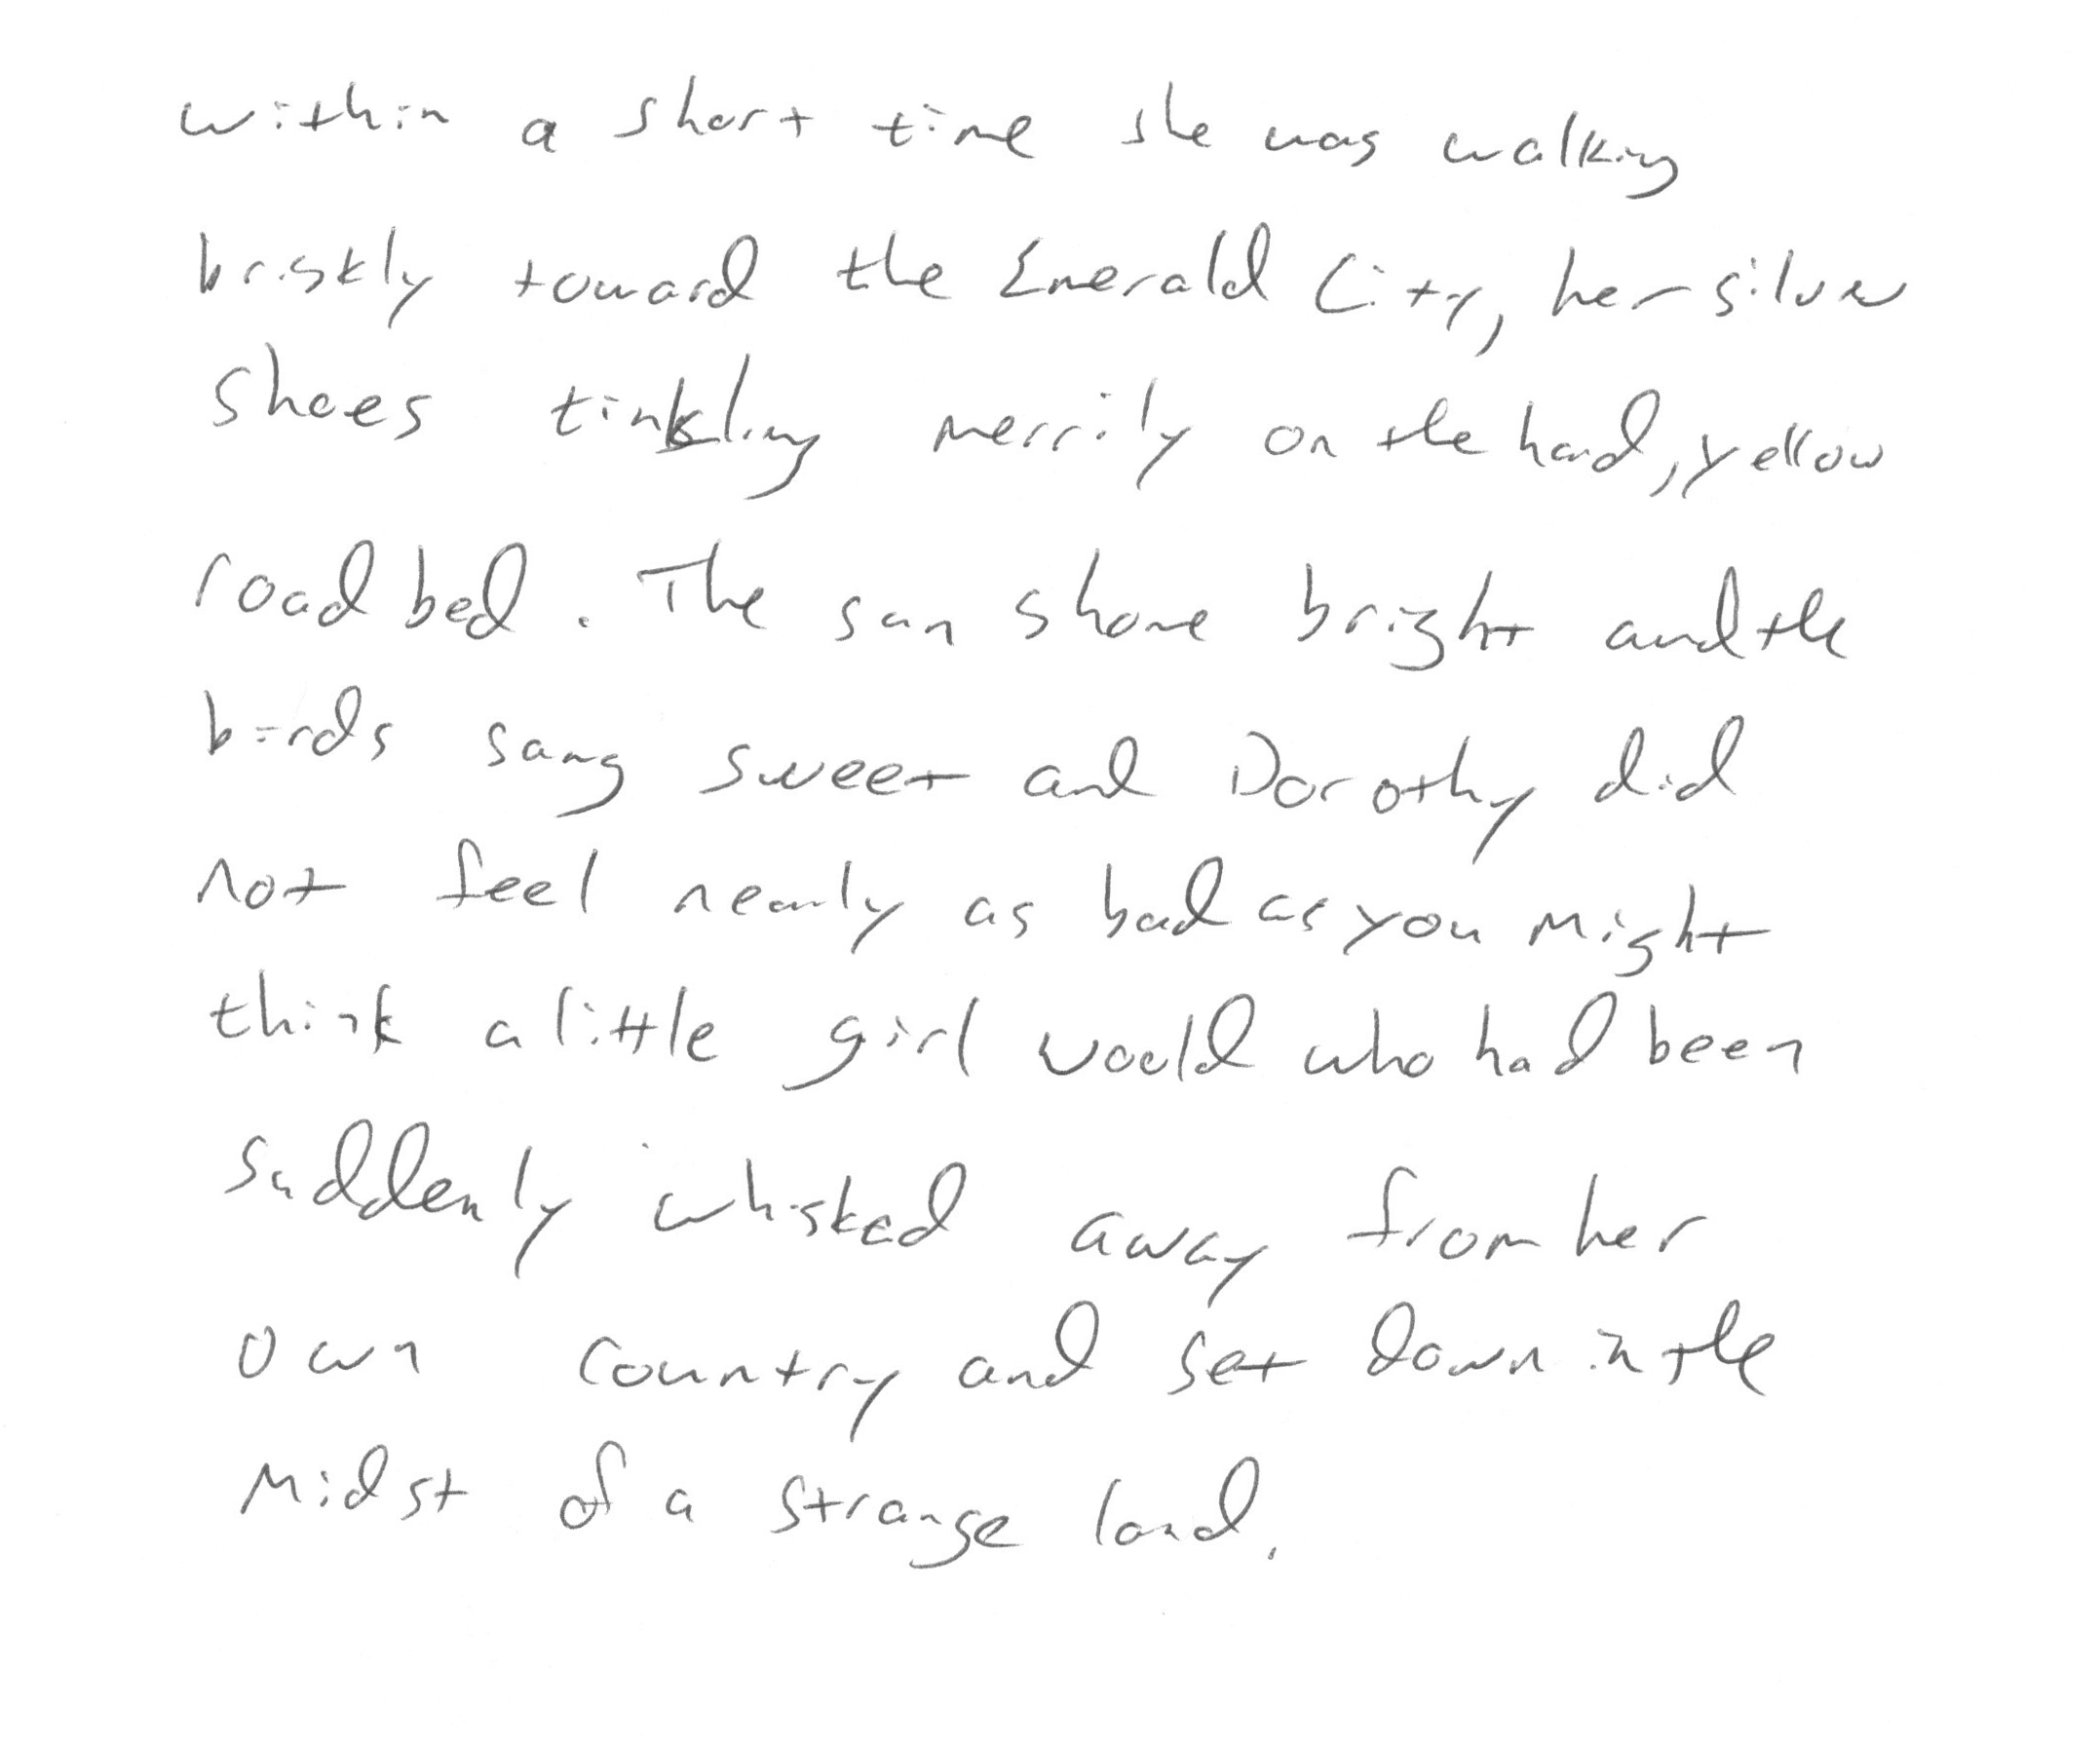 within a short time she was walking
briskly toward the Emerald City, her silver
shoes tinkling merrily on the hard, yellow
road bed. The sun shone bright and the
birds sang sweet and Dorothy did
not feel nearly as bad as you might
think a little girl would who had been
suddenly whisked away from her
own country and set down in the
midst of a strange land.